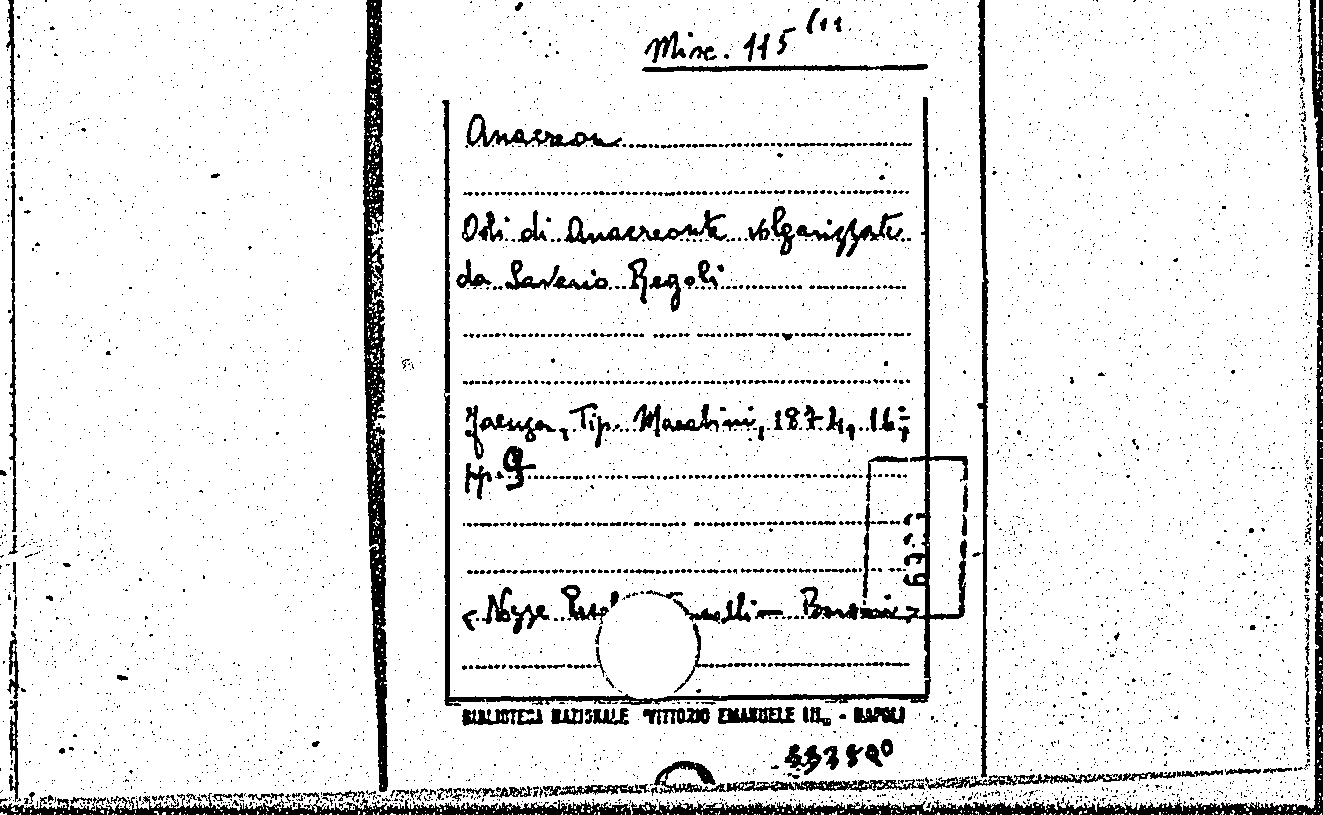 Misc. 115
Anacreon
Odi di Anacreonte volgarizzate
da Saverio Regoli
Faenza, Tip. Marabini, 1874, 16º,
pp. 9
< Nozze
BIBLIOTECA NAZIONALE "VITTORIO EMANUELE III„ - NAPOLI